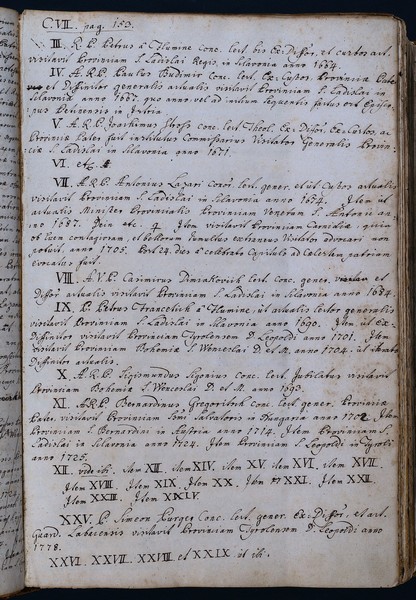 C. VII. pag. 153.
III. R. P. Petrus à Flumine Conc. Lect. bis Ex. Diffor, et custos act.
visitavit Provinciam S. Ladislai Regis in Slavonia anno 1684.
IV. A. R. P. Paulus Budimir Conc. Lect. Ex. Custos, Provinciæ Pater
et Deffinitor generalis actualis visitavit Provinciam S. Ladislai in
Sclavonia anno 1687. quo anno vel ad initium sequentis factus est Episco-
pus Petinensis in Istria
V. A. R. P. Joachimus conc. Lect. Theol. Ex. Diffor, Ex. Custos, ac
Provinciæ Pater fuit institutus Commissarius Visitator Generalis Provin-
ciæ S. Ladislai in Sclavonia anno 1671.
VI. etc.
VII. A. R. P. Antonius Lazari Conc. Lect. gener. et ut Custos actualis
visitavit Provinciam S. Ladislai in Sclavonia anno 1654. Item ut
actualis Minister Provincialis Provinciam Venetam S. Antonii an-
no 1687. Dein etc. Item visitavit Provinciam Carnioliæ, quia
ob luem contagiosam, et bellorum tumultus extraneus Visitator advocari non
potuit anno 1705. Post 24. dies à celebrato Capitulo ad Cælestem patriam
evocatus fuit.
VIII. A. V. P. Casimirus Conc. Lect. conc. gener. et
Diffor actualis visitavit Provinciam S. Ladislai in Sclavonia anno 1684.
IX. R. P. Petrus Francetich à Flumine, ut actualis Lector generalis
visitavit Provinciam S. Ladislai in Sclavonia anno 1690. Item ut Ex-
Diffinitor visitavit Provinciam Tyrolensem D. Leopoldi anno 1701. Item
visitavit Provinciam Bohemiæ S. Wenceslai D. et M. anno 1704. ut
Diffinitor actualis.
X. A. R. P. Sigismundus Conc. Lect. Jubilatus visitavit
Provinciam Bohemiæ S. Wenceslai D. et M. anno 1693.
XI. A. R. P. Bernardinus Gregoritsch Conc. Lect. gener. Provinciæ
Pater visitavit Provinciam Smi Salvatoris in Hungaria anno 1702. Item
Provinciam S. Bernardini in Austria anno 1714. Item Provinciam S.
Ladislai in Sclavonia anno 1724. Item Provinciam S. Leopoldi in Tyroli
anno 1725.
XII. vide ibi. Item XIII. Item XIV. Item XV. Item XVI. Item XVII.
Item XVIII. Item XIX. Item XX. Item XXI. Item XXII.
Item XXIII. Item XXIV.
XXV. P. Simeon Conc. Lect. gener. Ex. Diffor, et act.
Guard. Labacensis visitavit Provinciam Tyrolensem D. Leopoldi anno
1778.
XXVI. XXVII. XXVIII et XXIX ut ibi.